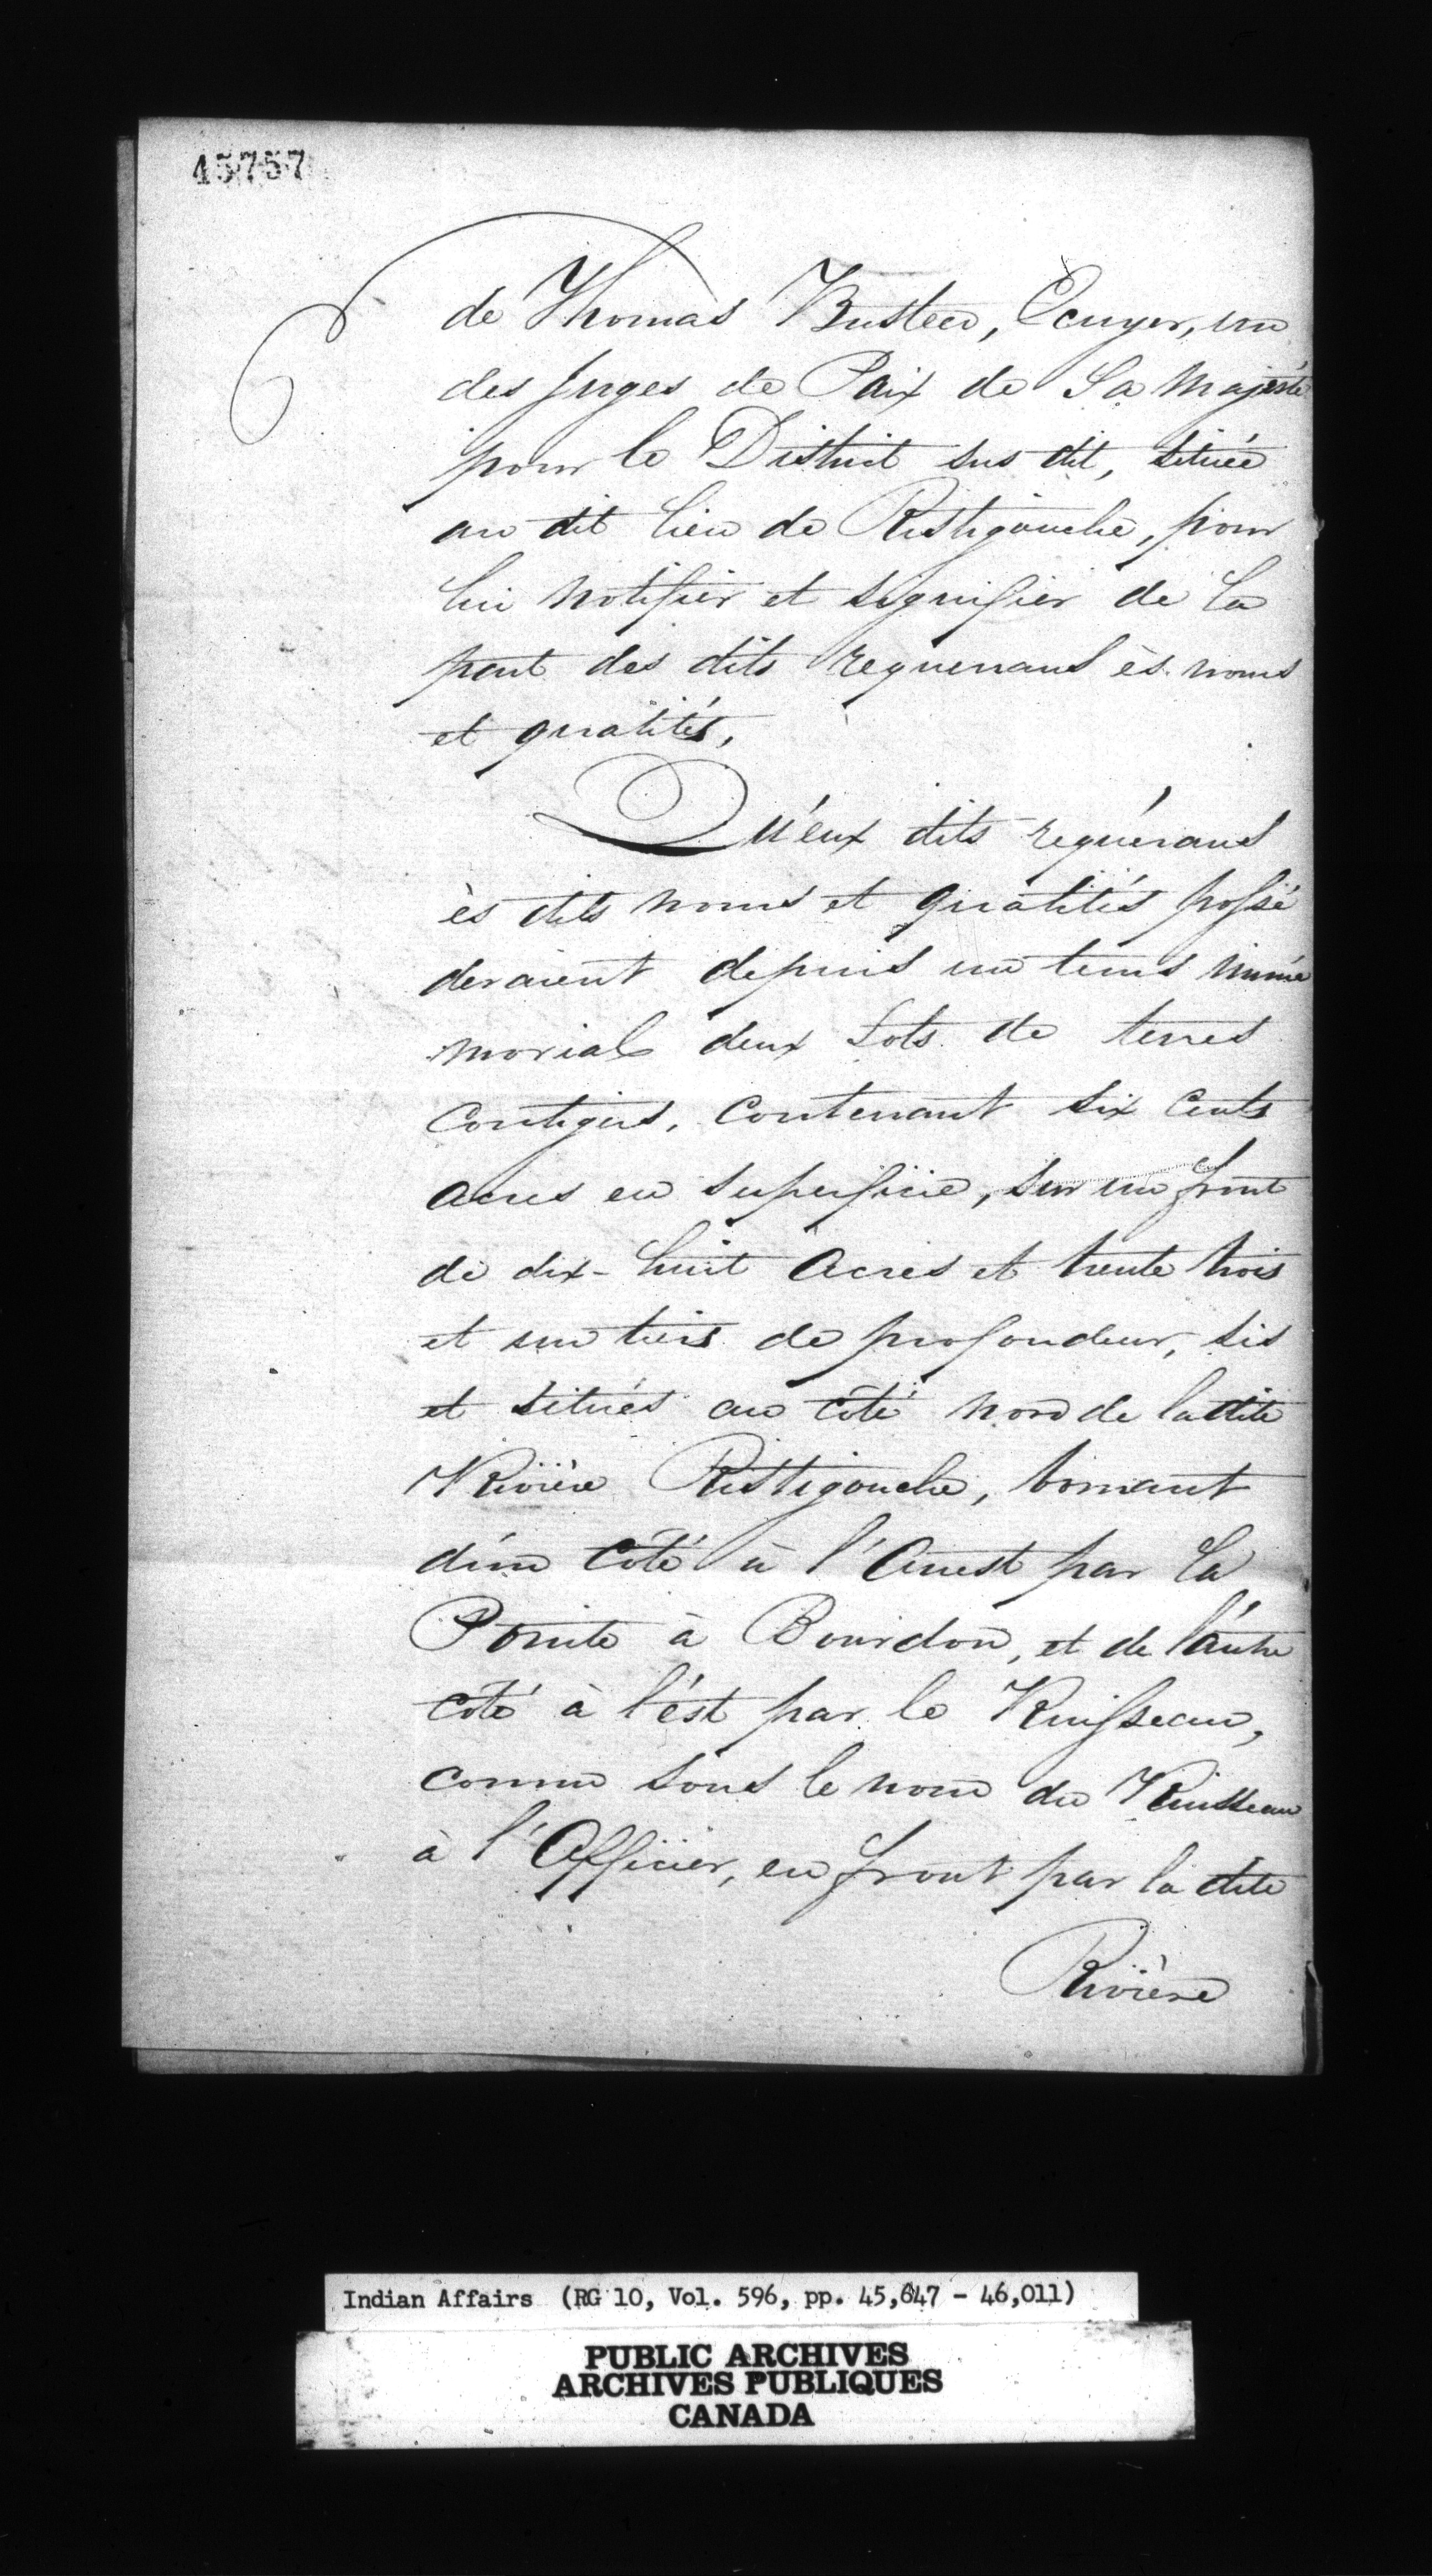 45757
de Thomas Busteed, Ecuyer, un
des juges de Paix de Sa Majesté
pour le District sus dit, située
au dit lieu de Ristigouche, pour
lui notifier et signifier de la
part des dits requerans ès noms
et qualités,
Qu'eux dits requérans
ès dits noms et qualités possé
deraient depuis un tems immé
morial deux Lots de terres
contigus, contenant six cents
acres en superficie, sur un front
de dix-huit acres et trente trois
et un tiers de profondeur, sis
et situés au côté nord de la dite
Rivière Ristigouche, bornant
d'un côté à l'Ouest par la
Pointe à Bourdon, et de l'autre
côté à l'est par le Ruisseau,
connu sous le nom du Ruisseau
à l'Officier, en front par la dite
Rivière
Indian Affairs (RG 10, Vol. 596, pp. 45,647 - 46,011)
PUBLIC ARCHIVES
ARCHIVES PUBLIQUES
CANADA